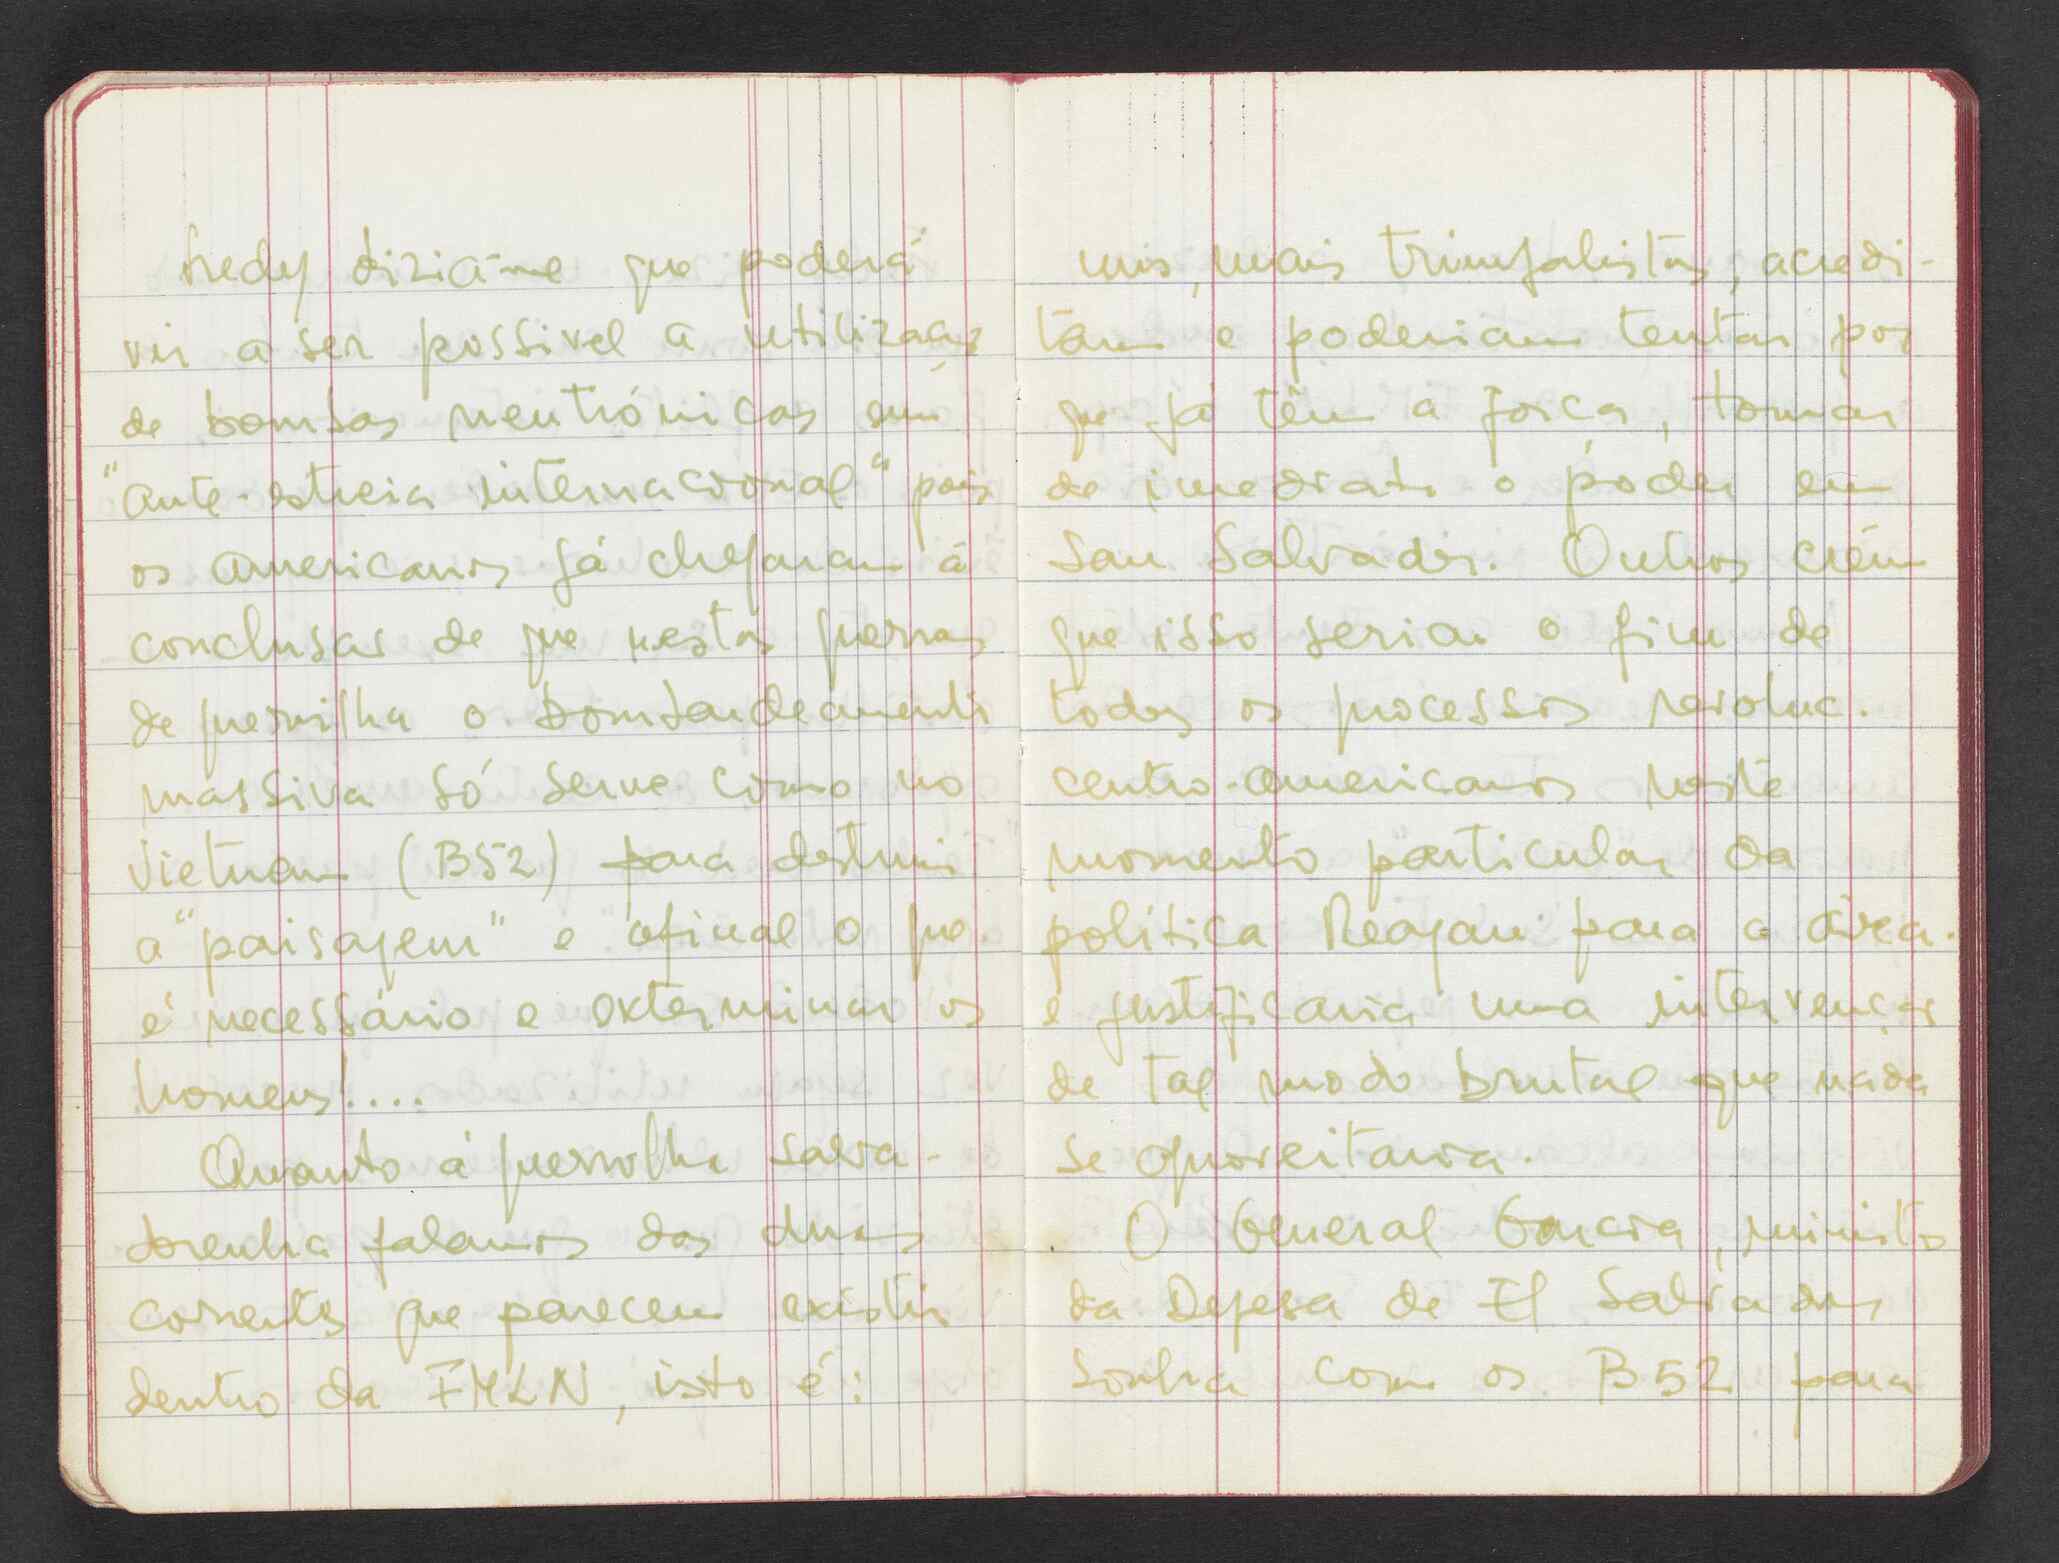 Fredy dizia-me que poderá
vir a ser possivel a utilização
de bombas neutrónicas em
"ante-estreia internacional" pois
os americanos já chegaram á
conclusão de que nestas guerras
de guerrilha o bombardeamento
massiva só serve como no
Vietnam (B52) para destruir
a "paisagem" e afinal o que
é necessário e exterminar os
homens!....
Quanto á guerrilha salva-
dorenha falamos das duas
correntes que parecem existir
dentro da FMLN, isto é:
uns, mais triunfalistas, acredi-
tam e poderiam tentar por
que já têm a força, tomar
de imediato o poder em
San Salvador. Outros crêm
que isso seria o fim de
todos os processos revoluc.
centro-americanos neste
momento particular da
política Reagan para a área.
e justificaria uma intervenção
de tal modo brutal que nada
se aproveitaria.
O General Garcia, ministro
da Defesa de El Salvador
sonha com os B52 para